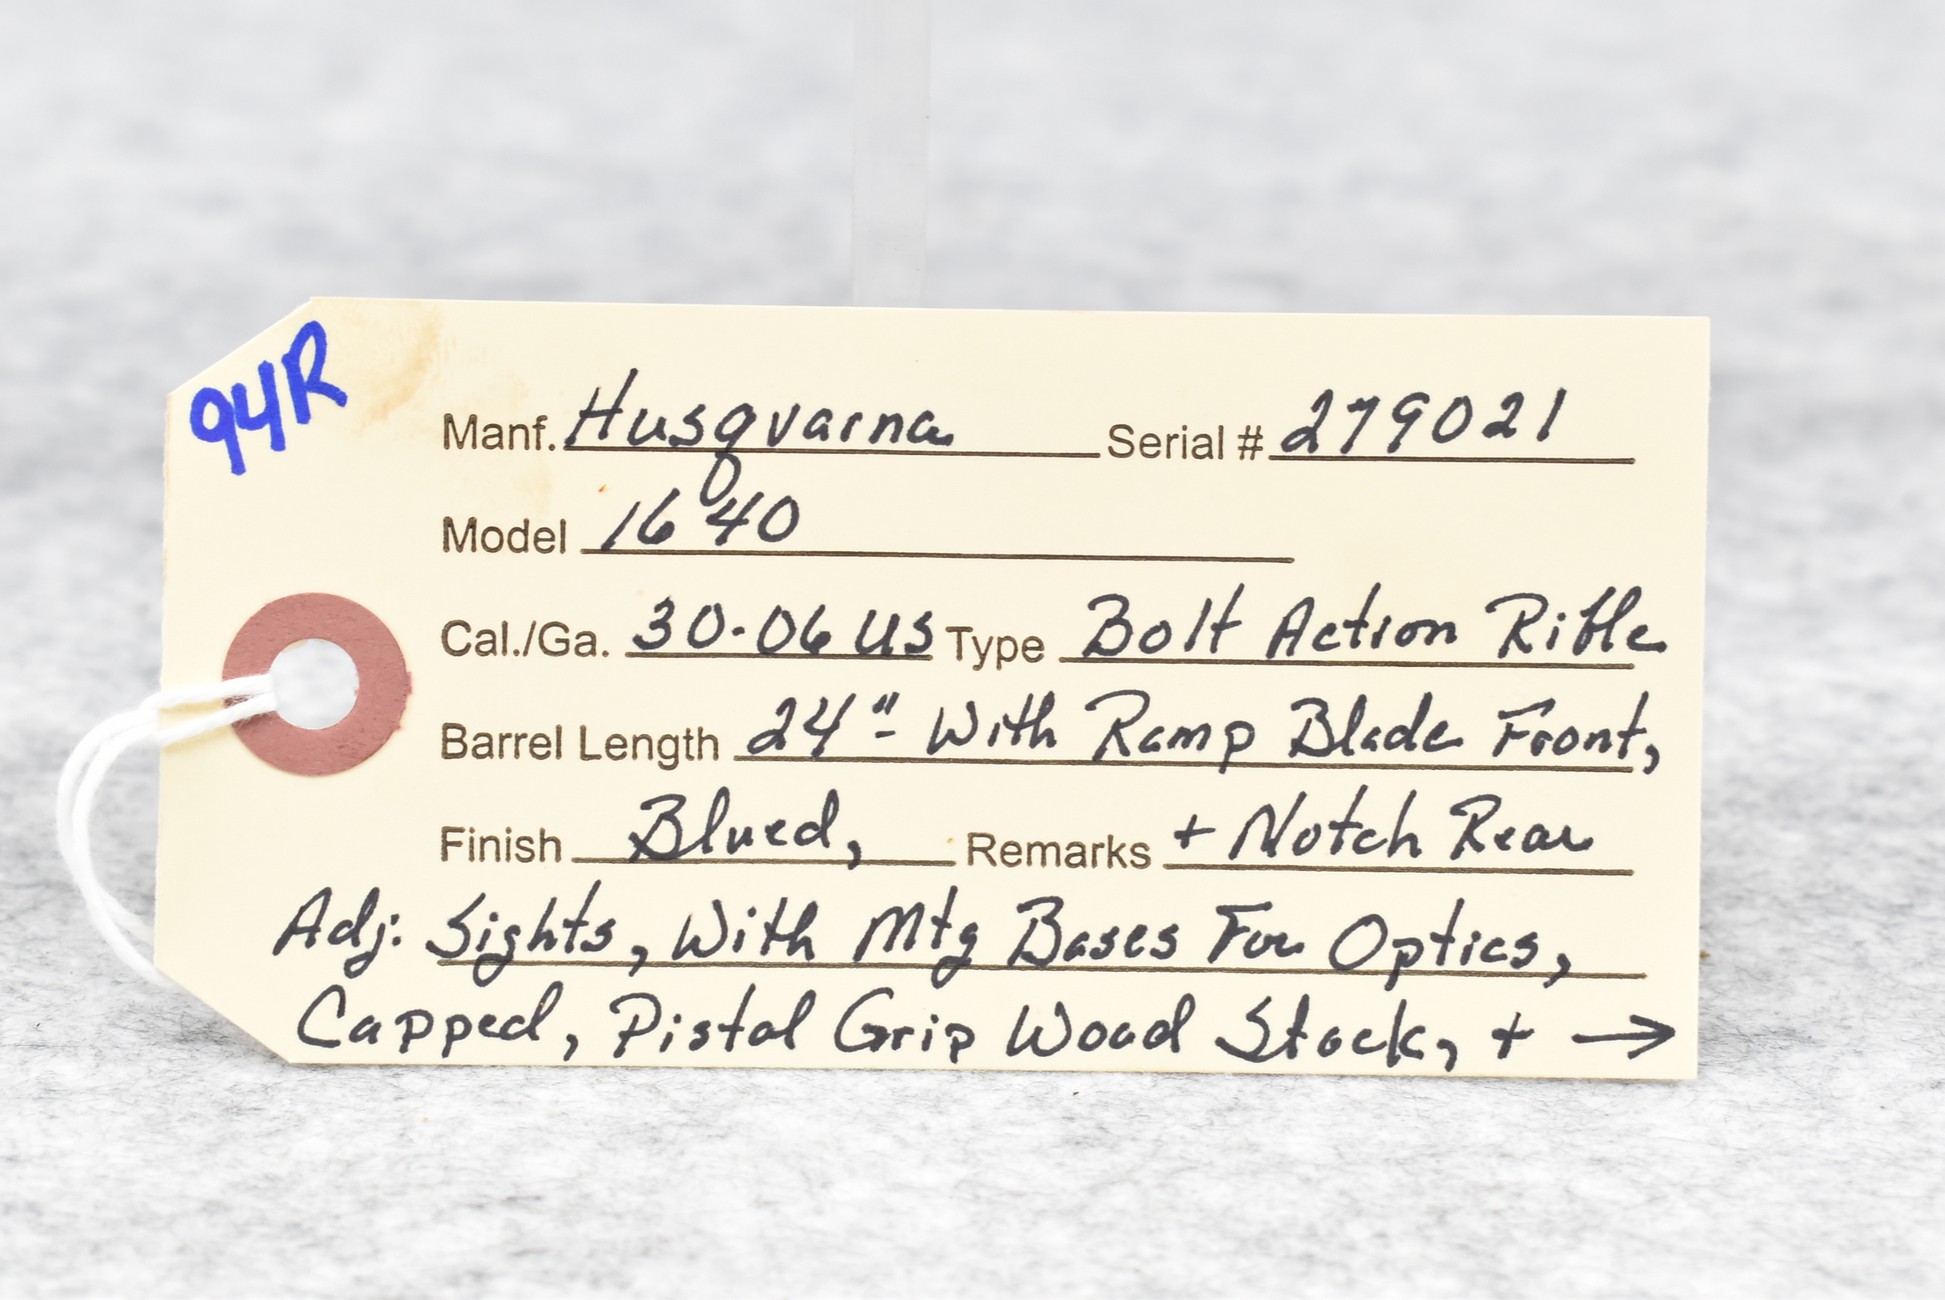 94R
Manf. Husqvarna Serial # 279021
Model 16040
Cal./Ga. 30-06 US Type Bolt Action Rifle
Barrel Length 24" - With Ramp Blade Front,
Finish Blued, Remarks + Notch Rear
Adj. Sights, With Mtg Bases For Optics,
Capped, Pistol Grip Wood Stock, + →